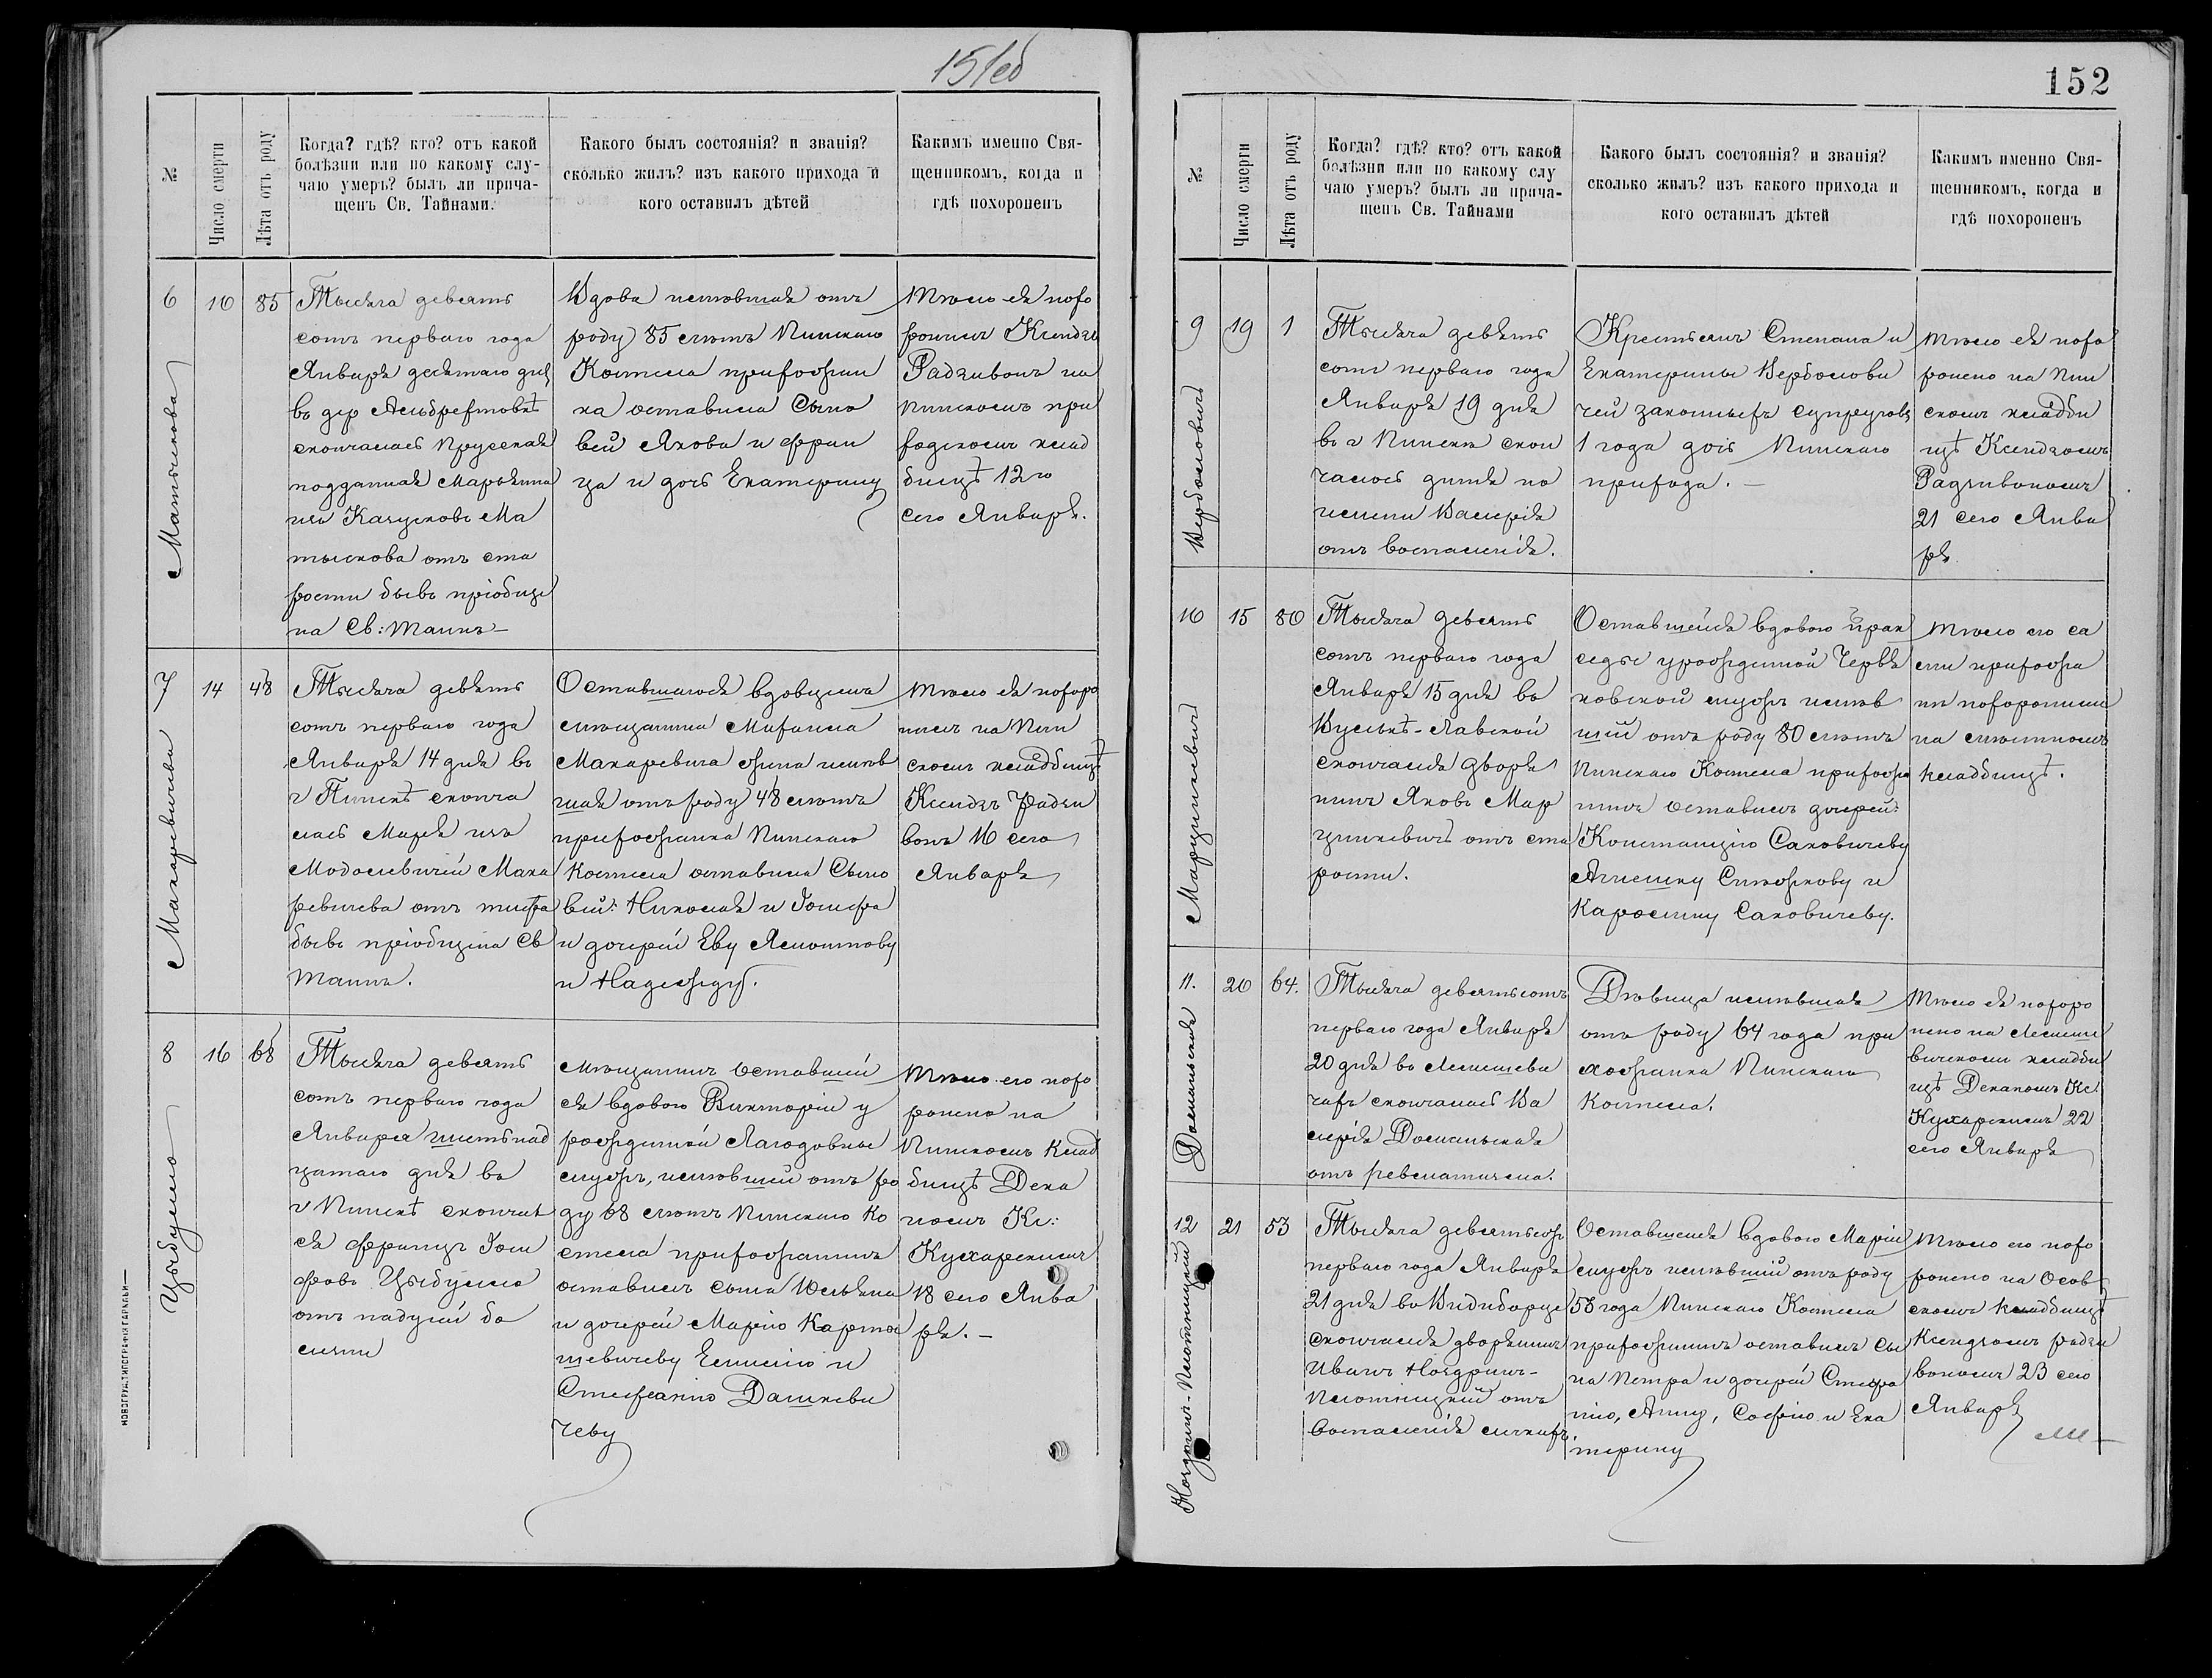 151об
№
Число смерти
Лѣта отъ роду
Когда? гдѣ? кто? отъ какой
болѣзни или по какому слу-
чаю умеръ? былъ ли прича-
щенъ Св. Тайнами.
Какого былъ состоянія? и званія?
сколько жилъ? изъ какого прихода и
кого оставилъ дѣтей
Какимъ именно Свя-
щенникомъ, когда и
гдѣ похороненъ
6
10
85
Матыскова
Тысяча девять
сотъ перваго года
Января десятаго дня
въ дер Альбрехтовѣ
скончалась Прусская
подданная Марьянна
изъ Качусковъ Ма
тыскова отъ ста
рости бывъ пріобще
на Св: Таинъ —
Вдова имѣвшая отъ
роду 85 лѣтъ Пинскаго
Костела прихожан
ка оставила Сыно
вей Якова и Фран
ца и дочь Екатерину
Тѣло ея похо
ронилъ Ксендзъ
Радзивонъ на
Пинскомъ при
ходскомъ клад
бищѣ 12 го
сего Января.
7
14
48
Макаревичева
Тысяча девять
сотъ перваго года
Января 14 дня въ
г Пинскѣ сконча
лась Марія изъ
Модолевичей Мака
ревичева отъ тифа
бывъ пріобщена Св
Таинъ.
Оставшагося вдовцемъ
мѣщанина Михаила
Макаревича жена имѣв
шая отъ роду 48 лѣтъ
прихожанка Пинскаго
Костела оставила Сыно
вей: Николая и Іосифа
и дочерей Еву Ясмонтову
и Надежду.
Тѣло ея похоро
нилъ на Пин
скомъ кладбищѣ
Ксендзъ Радзи
вонъ 16 сего
Января
8
16
68
Цыбулло
Тысяча девять
сотъ перваго года
Января шестьнад
цатаго дня въ
г Пинскѣ скончал
ся Францъ Іоси
фовъ Цыбулло
отъ падучей бо
лезни
Мѣщанинъ оставшей
ся вдовою Викторіи у
рожденной Лагодовны
мужъ, имѣвшій отъ ро
ду 68 лѣтъ Пинскаго Ко
стела прихожанинъ
оставилъ сына Юльяна
и дочерей Марію Карто
шевичеву Емилію и
Стефанію Дашкеви
чеву
Тѣло его похо
ронено на
Пинскомъ Клад
бищѣ Дека
номъ Кс:
Кухарскимъ
18 сего Янва
ря. —
НОВОГРУД. ТИПОГРАФІЯ
152
№
Число смерти
Лѣта отъ роду
Когда? гдѣ? кто? отъ какой
болѣзни или по какому слу
чаю умеръ? былъ ли прича-
щенъ Св. Тайнами
Какого былъ состоянія? и званія?
сколько жилъ? изъ какого прихода и
кого оставилъ дѣтей
Какимъ именно Свя-
щенникомъ, когда и
гдѣ похороненъ
9
19
1
Верболовичъ
Тысяча девять
сотъ перваго года
Января 19 дня
въ г Пинскѣ скон
чалось дитя по
имени Валерія
отъ воспаленія.
Крестьянъ Степана и
Екатерины Верболови
чей законныхъ супруговъ
1 года дочь Пинскаго
прихода. —
Тѣло ея похо
ронено на Пин
скомъ кладби
щѣ Ксендзомъ
Радзивономъ
21 сего Янва
ря
10
15
80
Марцинкевичъ
Тысяча девять
сотъ перваго года
Января 15 дня въ
Вулькѣ-Лавской
скончался дворя
нинъ Яковъ Мар
цинкевичъ отъ ста
рости.
Оставшейся вдовою Прак
седы урожденной Червя
ковской мужъ имѣв
шій отъ роду 80 лѣтъ
Пинскаго Костела прихожа
нинъ оставилъ дочерей:
Констанцію Саковичеву
Агнешку Ситожкову и
Каролину Саковичеву.
Тѣло его са
ми прихожа
не похоронили
на мѣстномъ
кладбищѣ.
11.
20
64.
Домыльская
Тысяча девятьсотъ
перваго года Января
20 дня въ Лемешеви
чахъ скончалась Ва
лерія
отъ ревматизма.
Дѣвица имѣвшая
отъ роду 64 года при
хожанка Пинскаго
Костела.
Тѣло ея похоро
нено на Лемеше
вичскомъ кладби
щѣ Деканомъ Кс.
Кухарскимъ 22
сего Января
12
21
53
Ноздринъ-Плотницкій
Тысяча девятьсотъ
перваго года Января
21 дня въ Видиборце
скончался дворянинъ
Иванъ Ноздринъ-
Плотницкій отъ
воспаленія легкихъ
Оставшейся вдовою Маріи
мужъ имѣвшій отъ роду
53 года Пинскаго Костела
прихожанинъ оставилъ сы
на Петра и дочерей Стефа
нію, Анну, Софію и Ека
терину
Тѣло его похо
ронено на Осов
скомъ кладбищѣ
Ксендзомъ Радзи
вономъ 23 сего
Января